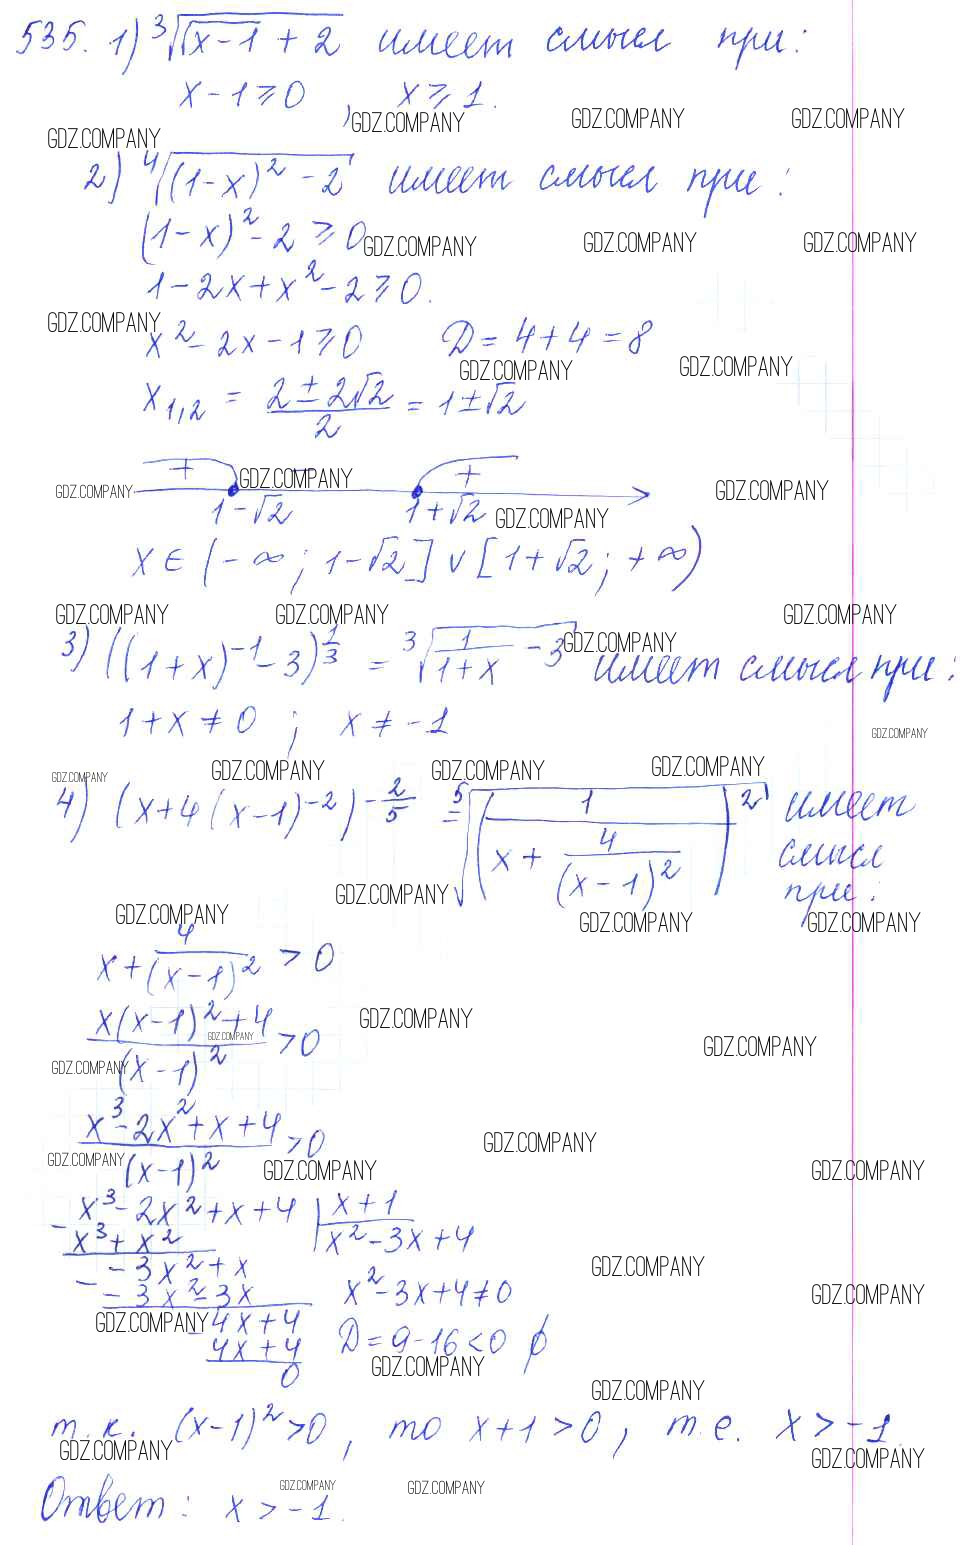 535. 1) ∛(√(x-1) + 2) имеет смысл при:
x-1 ≥ 0 , x ≥ 1.
GDZ.COMPANY GDZ.COMPANY GDZ.COMPANY GDZ.COMPANY
2) ∜((1-x)² - 2) имеет смысл при:
(1-x)² - 2 ≥ 0
GDZ.COMPANY GDZ.COMPANY GDZ.COMPANY
1-2x+x²-2 ≥ 0.
GDZ.COMPANY
x²-2x-1 ≥ 0 D = 4+4 = 8
GDZ.COMPANY GDZ.COMPANY
x₁,₂ = (2 ± 2√2)/2 = 1 ± √2
+ GDZ.COMPANY +
GDZ.COMPANY GDZ.COMPANY
1-√2 1+√2 GDZ.COMPANY
x ∈ (-∞; 1-√2] ∨ [1+√2; +∞)
GDZ.COMPANY GDZ.COMPANY GDZ.COMPANY
3) ((1+x)⁻¹ - 3)^(1/3) = ∛(1/(1+x) - 3) имеет смысл при:
GDZ.COMPANY
1+x ≠ 0 ; x ≠ -1
GDZ.COMPANY
GDZ.COMPANY GDZ.COMPANY GDZ.COMPANY GDZ.COMPANY
4) (x+4(x-1)⁻²)^(-2/5) = ⁵√((1/(x + 4/(x-1)²))²) имеет
смысл
при:
GDZ.COMPANY
GDZ.COMPANY GDZ.COMPANY GDZ.COMPANY
x + 4/(x-1)² > 0
(x(x-1)²+4)/(x-1)² > 0
GDZ.COMPANY GDZ.COMPANY GDZ.COMPANY
GDZ.COMPANY
(x³-2x²+x+4)/(x-1)² > 0
GDZ.COMPANY
GDZ.COMPANY GDZ.COMPANY GDZ.COMPANY
- x³-2x²+x+4 | x+1
x³+x² | x²-3x+4
- -3x²+x
GDZ.COMPANY
-3x²-3x x²-3x+4 ≠ 0
GDZ.COMPANY
GDZ.COMPANY - 4x+4
4x+4 D = 9-16 < 0 ∅
0
GDZ.COMPANY
GDZ.COMPANY
т.к. (x-1)² > 0, то x+1 > 0, т.е. x > -1.
GDZ.COMPANY GDZ.COMPANY
GDZ.COMPANY GDZ.COMPANY
Ответ: x > -1.